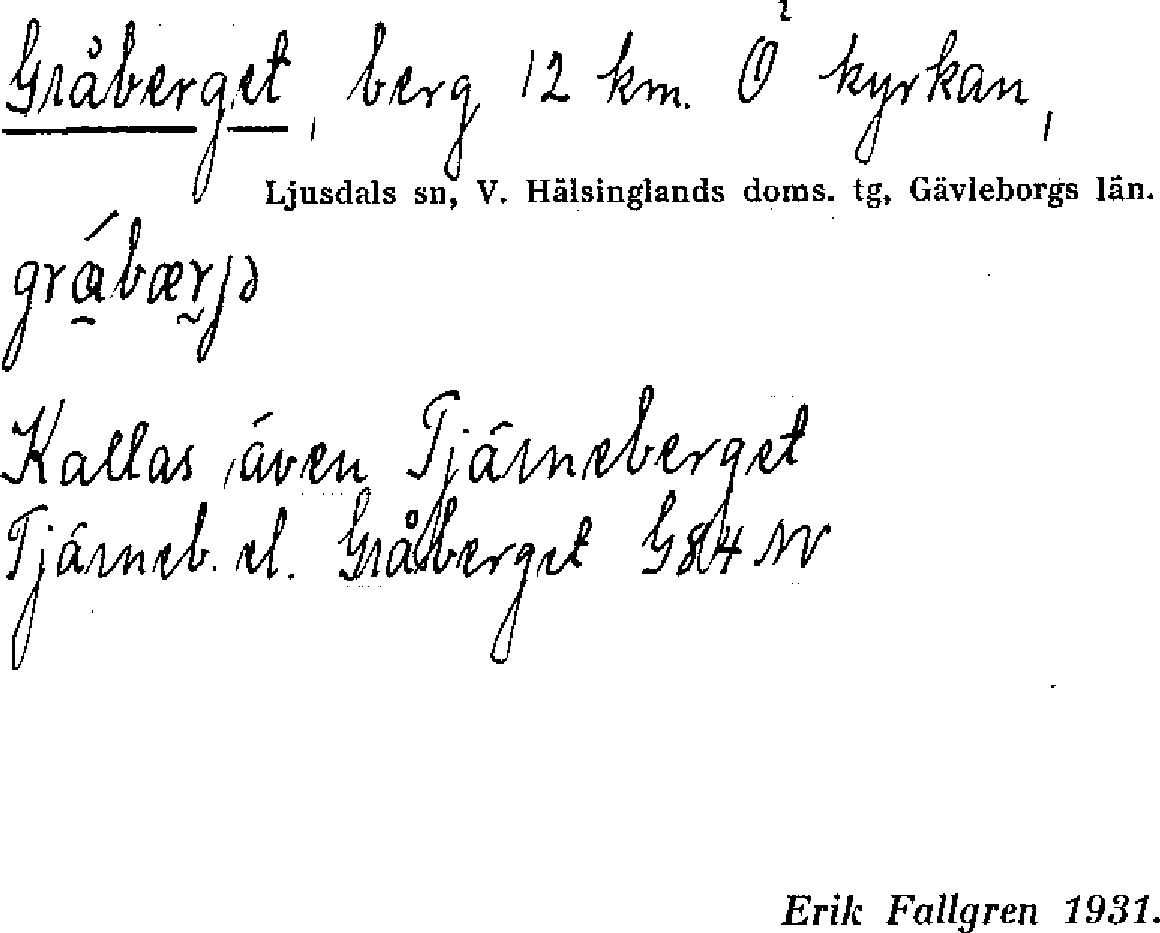 Gråberget, berg 12 km. Ö kyrkan,
Ljusdals sn, V. Hälsinglands doms. tg, Gävleborgs län.
Kallas även Tjärneberget
Tjärneb. el. Gråberget G84 NV
Erik Fallgren 1931.